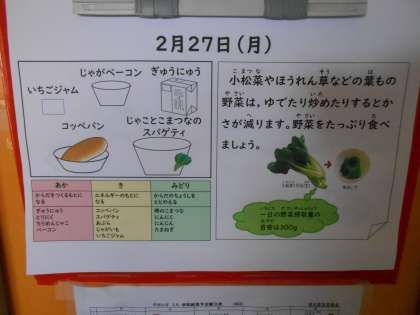 2月27日(月)
いちごジャム
じゃがベーコン
ぎゅうにゅう
コッペパン
じゃことこまつなの
スパゲティ
小松菜やほうれん草などの葉もの
野菜は、ゆでたり炒めたりするとか
さが減ります。野菜をたっぷり食べ
ましょう。
一日の野菜摂取量の
目安は300g
あか
き
みどり
からだをつくるもとに
なる
エネルギーのもとに
なる
からだのちょうしを
ととのえる
ぎゅうにゅう
とりにく
ちりめんじゃこ
ベーコン
コッペパン
スパゲティ
あぶら
じゃがいも
いちごジャム
にんにく
にんじん
たまねぎ